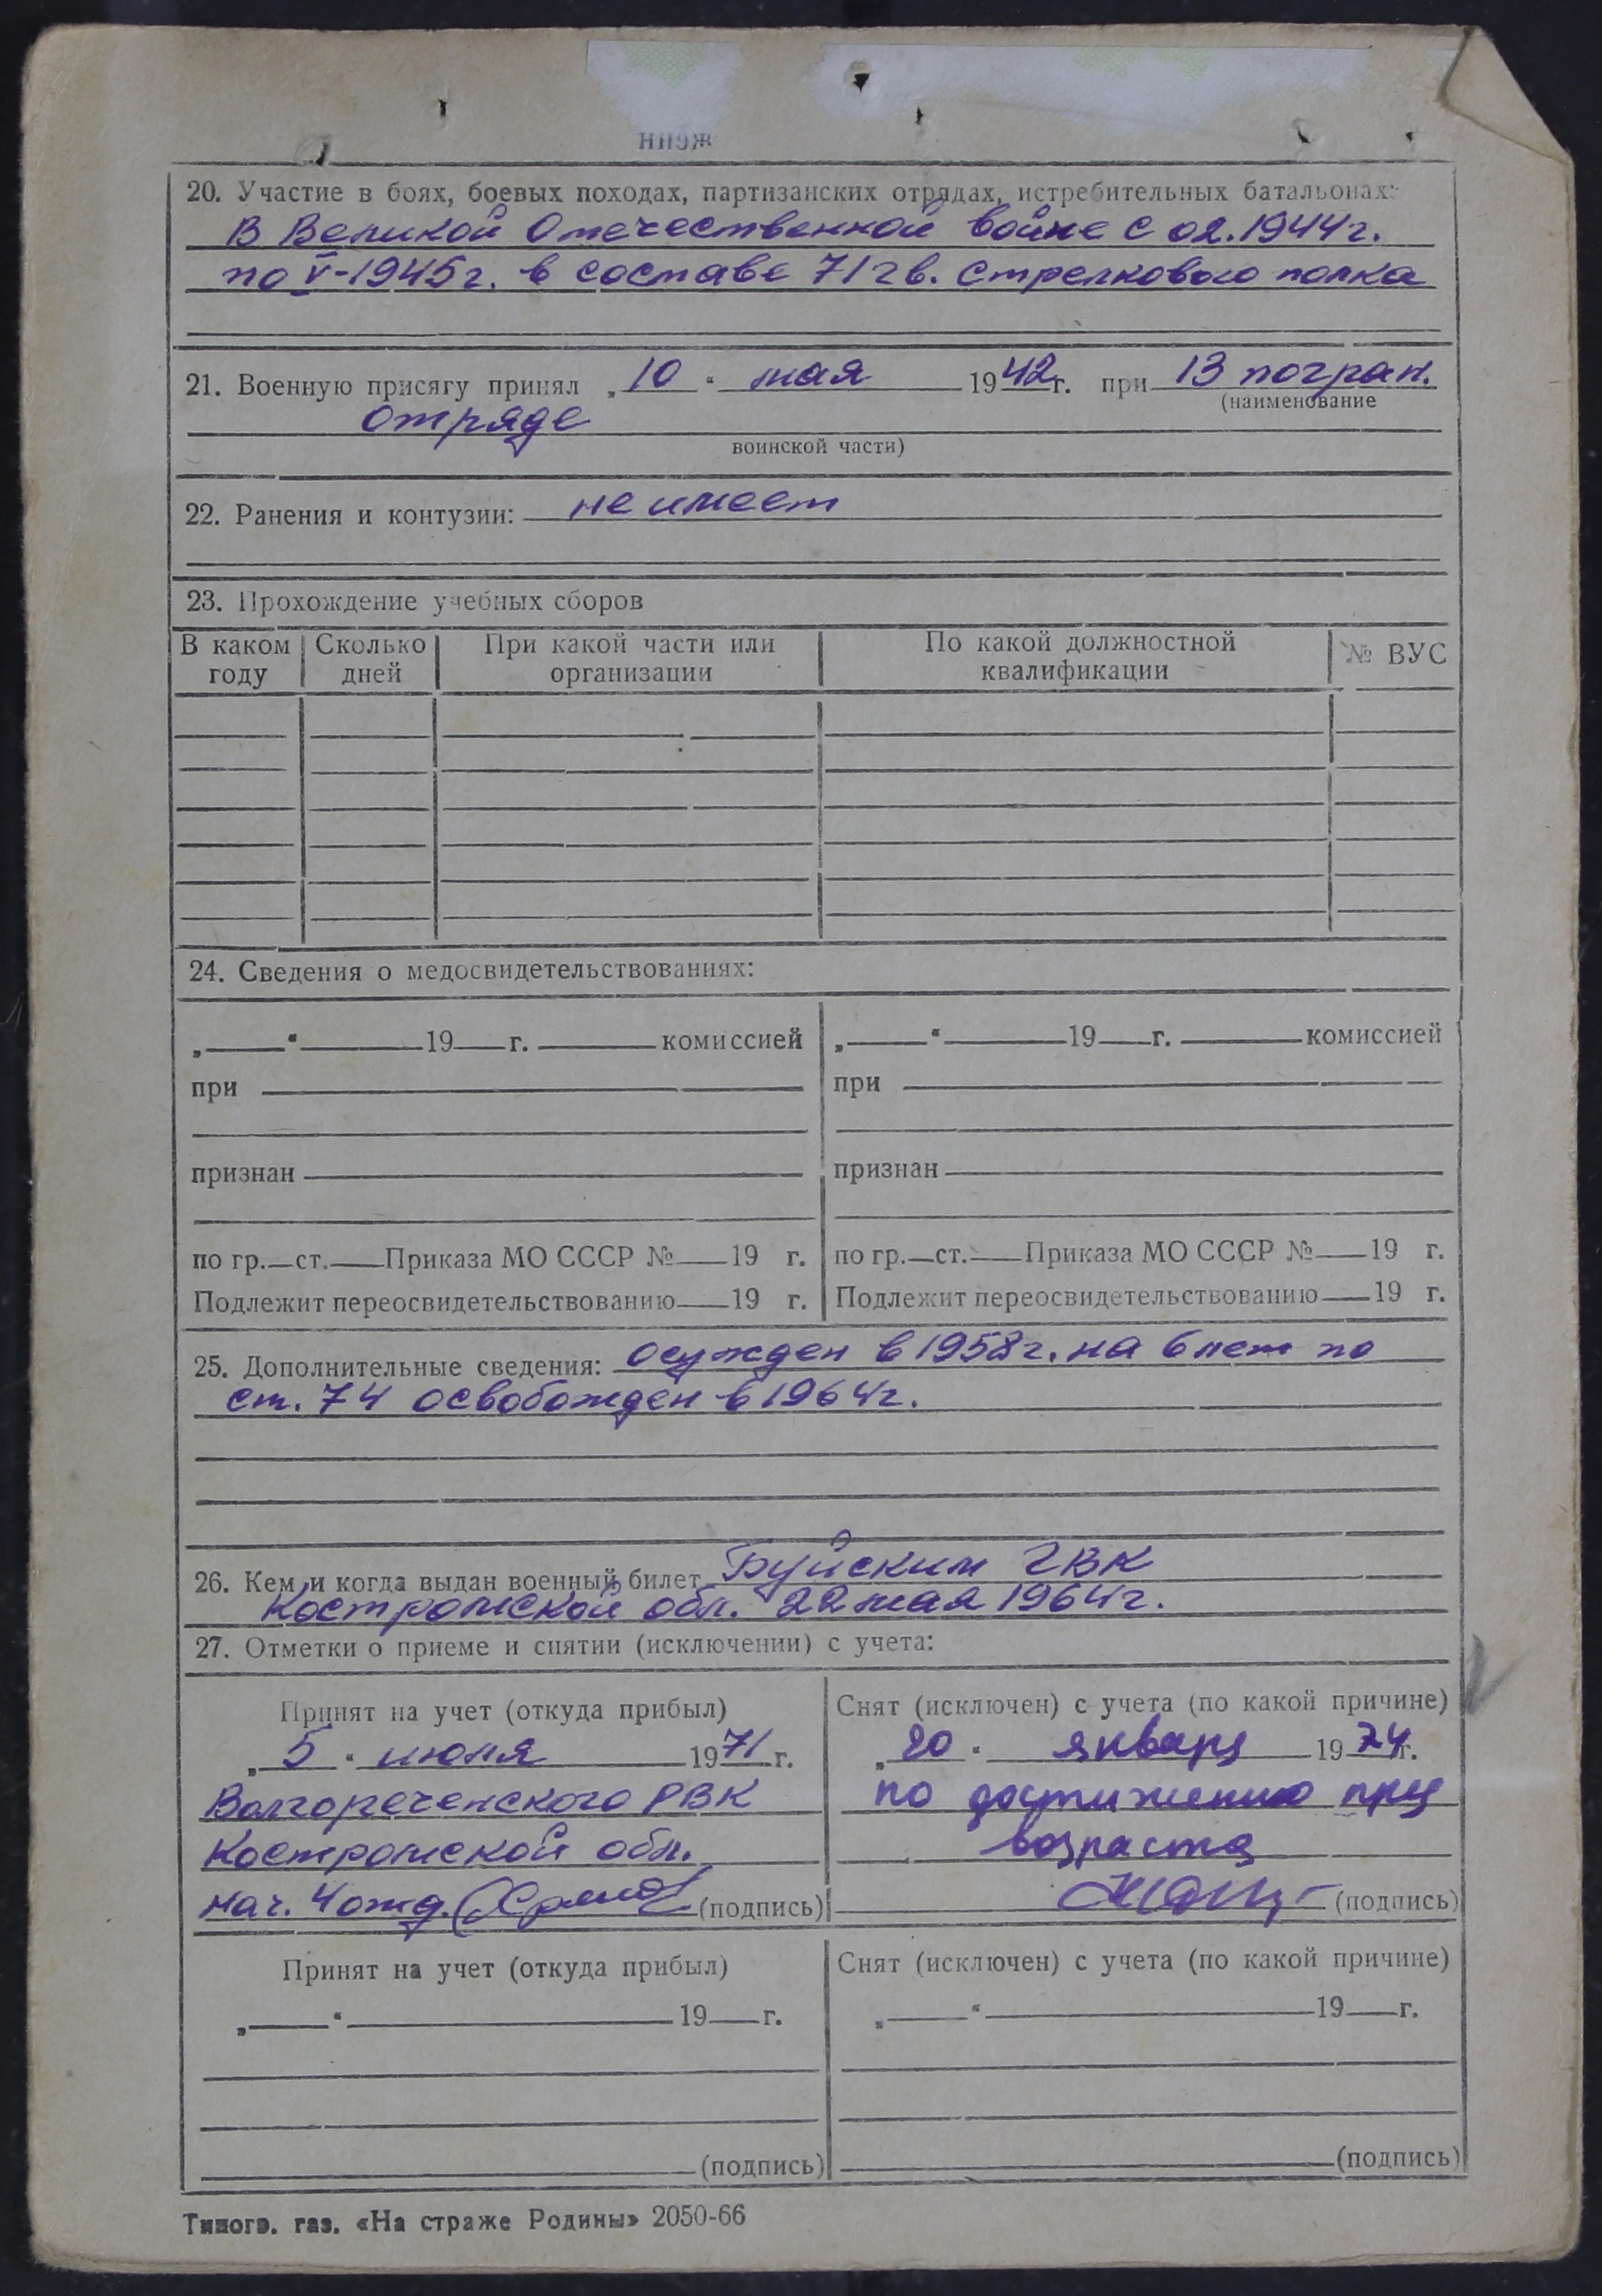 20. Участие в боях, боевых походах, партизанских отрядах, истребительных батальонах:
В Великой Отечественной войне с 02.1944г.
по V-1945г. в составе 71 гв. стрелкового полка
21. Военную присягу принял „10“ мая 1942г. при 13 погран.
(наименование
отряде
воинской части)
22. Ранения и контузии: не имеет
23. Прохождение учебных сборов
В каком году Сколько дней При какой части или организации По какой должностной квалификации № ВУС
24. Сведения о медосвидетельствованиях:
„ “ 19 г. комиссией „ “ 19 г. комиссией
при при
признан признан
по гр. ст. Приказа МО СССР № 19 г. по гр. ст. Приказа МО СССР № 19 г.
Подлежит переосвидетельствованию 19 г. Подлежит переосвидетельствованию 19 г.
25. Дополнительные сведения: осужден в 1958г. на 6 лет по
ст. 74 освобожден в 1964г.
26. Кем и когда выдан военный билет Буйским ГВК
Костромской обл. 22 мая 1964г.
27. Отметки о приеме и снятии (исключении) с учета:
Принят на учет (откуда прибыл) Снят (исключен) с учета (по какой причине)
„5“ июня 1971г. „20“ январь 1974г.
Волгореченского РВК по достижению пред
Костромской обл. возраста
нач. 4 отд. (подпись) (подпись)
Принят на учет (откуда прибыл) Снят (исключен) с учета (по какой причине)
„ “ 19 г. „ “ 19 г.
(подпись) (подпись)
Типогр. газ. «На страже Родины» 2050-66